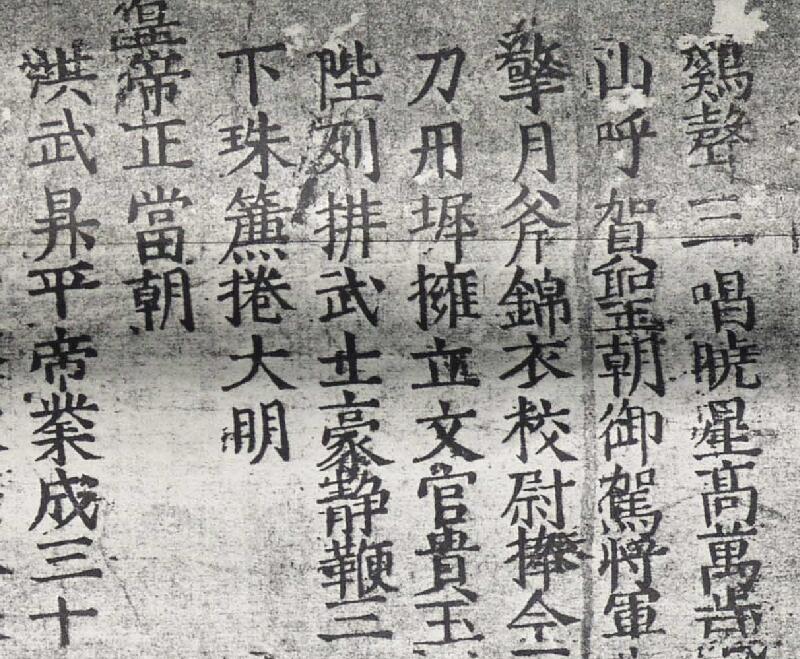 鷄聲三唱曉星高萬歲
山呼賀聖朝御駕將軍
擎月斧錦衣校尉捧金
刀丹墀擁立文官貴玉
陛列排武士豪静鞭三
下珠簾捲大明
皇帝正當朝
洪武昇平帝業成三十